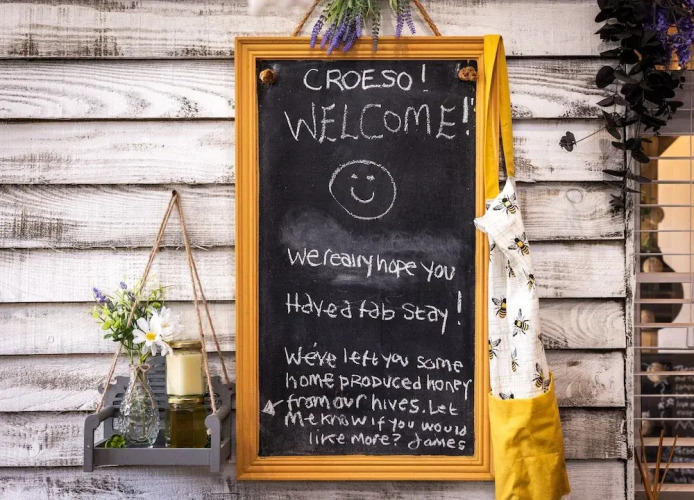 CROESO!
WELCOME!
We really hope you
Have a fab stay!
We've left you some
home produced honey
from our hives. Let
me know if you would
like more? James